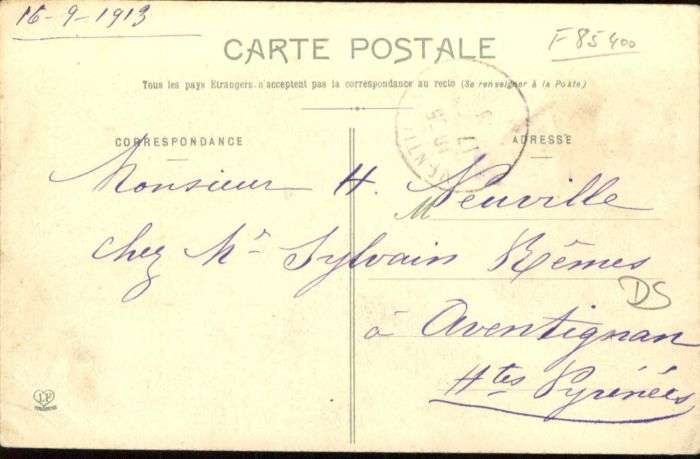 16-9-1913
F 85400
CARTE POSTALE
Tous les pays Étrangers n'acceptent pas la correspondance au recto (Se renseigner à la Poste)
CORRESPONDANCE
ADRESSE
Monsieur H. Neuville
M
chez Mr Sylvain Rêmes
DS
à Aventignan
Htes Pyrénées